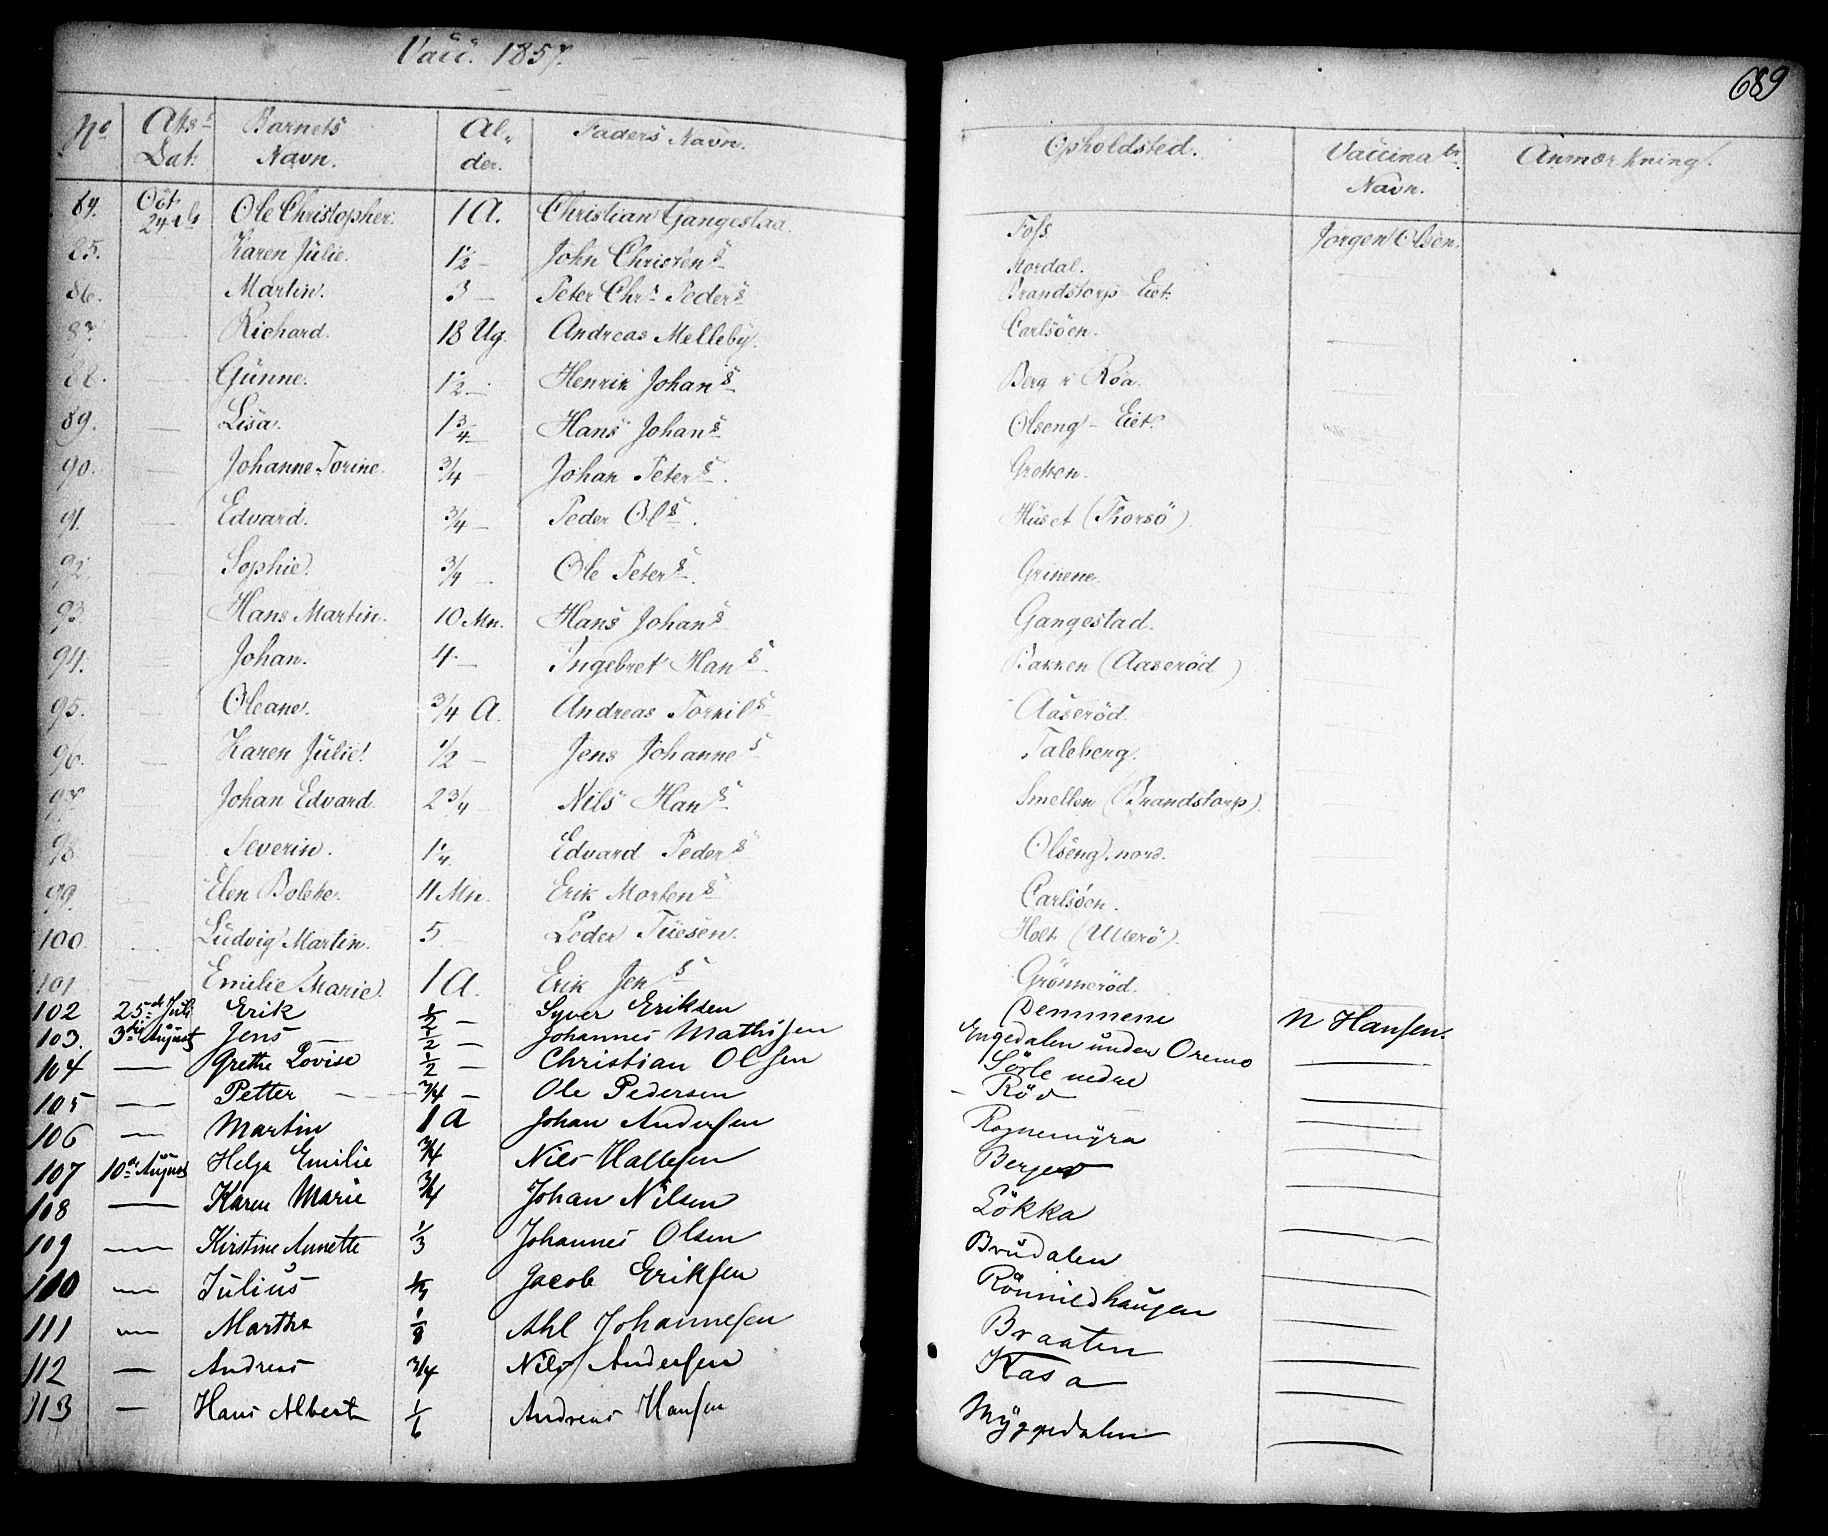 Vacc. 1857.
689
No | Atts. Dat. | Barnets Navn. | Al- der. | Faders Navn. | Opholdsted. | Vaccina tr Navn. | Anmærkning.
84. | Oct. 24de | Ole Christopher. | 1 A. | Christian Gangestad. | Foss. | Jørgen Olsen.
85. | — | Karen Julie. | 1½ — | John Christens | Mordal.
86. | — | Martin. | 3 — | Peter Chrs Peders | Brandstorp Eiet.
87. | — | Richard. | 18 Ug. | Andreas Melleby. | Carlsöen.
88. | — | Gunne. | 1½ — | Henrik Johans | Berg i Röa.
89. | — | Lisa. | 1¾ — | Hans Johans | Olseng – Eiet.
90. | — | Johanne Torine. | ¾ — | Johan Peters. | Grotten.
91. | — | Edvard. | ¾ — | Peder Ols. | Huset (Thorsö).
92. | — | Sophie. | ¾ — | Ole Peters. | Grinene.
93. | — | Hans Martin. | 10 Mn. | Hans Johans | Gangestad.
94. | — | Johan. | 4 — | Ingebret Hans | Bakken (Aaseröd)
95. | — | Oleane. | ¾ A. | Andreas Torkils | Aaseröd.
96. | — | Karen Julie. | ½ — | Jens Johannes | Taleberg.
97. | — | Johan Edvard. | 2¾ — | Nils Hans. | Smellen (Brandstorp).
98. | — | Severin. | 1¼. | Edvard Peders | Olseng, nord.
99. | — | Elen Bolette. | 11 Mn. | Erik Mortens | Carlsöen.
100. | — | Ludvig Martin. | 5 — | Peder Tuesen. | Holt (Ullerö).
101 | — | Emilie Marie. | 1 A. | Erik Jens | Grönneröd.
102 | 25de Juli | Erik | ½ — | Syver Eriksen | Demmene | N Hansen.
103. | 3die August | Jens | ½ — | Johannes Mathisen | Engedalen under Oremo | —
104 | — | Grethe Lovise | ½ — | Christian Olsen | Sörle nedre | —
105 | — | Petter | ¾ — | Ole Pedersen | Röd | —
106 | — | Martin | 1 A | Johan Andersen | Rognemyra | —
107 | 10de August | Helga Emilie | ¾ | Nils Hallesen | Berger | —
108 | — | Karen Marie | ¾ | Johan Nilsen | Lökka | —
109 | — | Kirstine Annette | ⅓ | Johannes Olsen | Brudalen | —
110 | — | Julius | | Jacob Eriksen | Rönnildhaugen | —
111 | — | Marthe | ⅛ | Ahl Johannesen | Braaten | —
112 | — | Andreas | ¾ | Nils Andersen | Kasa | —
113 | — | Hans Albert | 1/6 | Andreas Hansen | Myggedalen | —